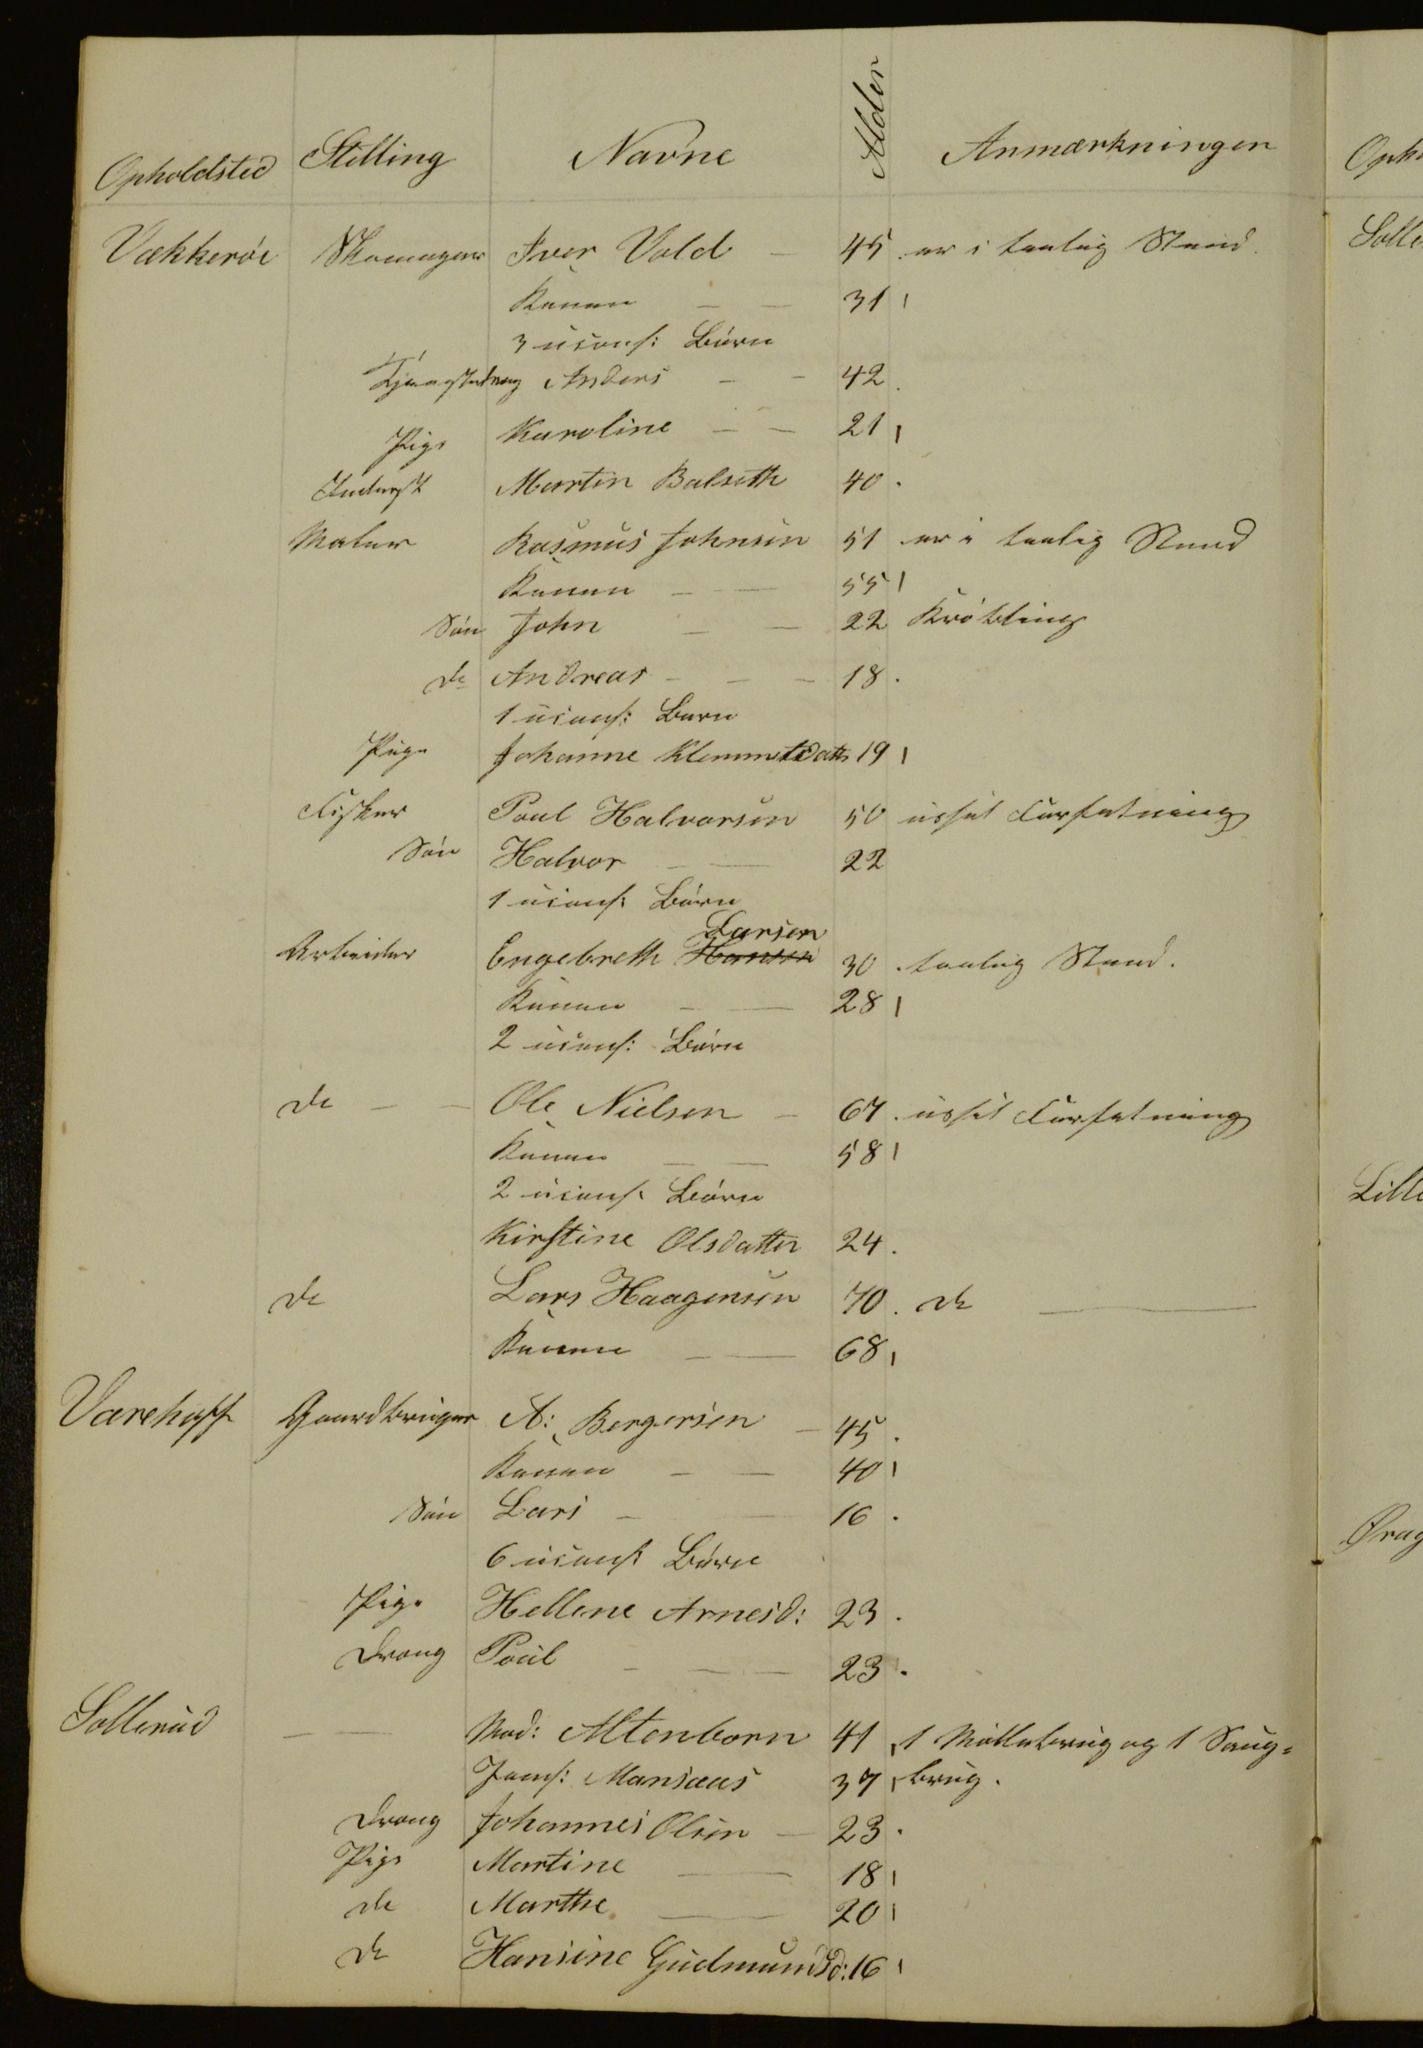 Opholdsted Stilling Navne Alder Anmærkninger
Vækkerøe Skomager Iver Vold 45 er i taalig Stand.
Konen 31
3 uconf: Børn
Tjenestedreng Anders 42
Pige Karoline 21
Inderst Martin Balseth 40
Maler Rasmus Johnsen 51 er i taalig Stand
Konen 55
Søn John 22 Krøbling
do Andreas 18
1 uconf: Barn
Pige Johanne Klemmetsdatt 19
Fisker Poul Halvorsen 50 ussel Forfatning
Søn Halvor 22
1 uconf: Børn
Larsen
Arbeider Engebreth Hansen 30 taalig Stand.
Konen 28
2 uconf: Børn
do Ole Nielsen 67 ussel Forfatning
Konen 58
2 uconf: Børn
Kirstine Olsdatter 24
do Lars Haagensen 70 do
Konen 68
Gaardbruger A: Bergersen 45
Konen 40
Søn Lars 16
6 uconf: Børn
Pige Hellene Arnesd: 23
Dreng Poul 23
Sollerud Mad: Altenborn 41 1 Møllebrug og 1 Saug=
Jomf: 37 brug.
Dreng Johannes Olsen 23
Pige Martine 18
do Marthe 20
do Hansine Gudmundsd: 16
Solle
Lille